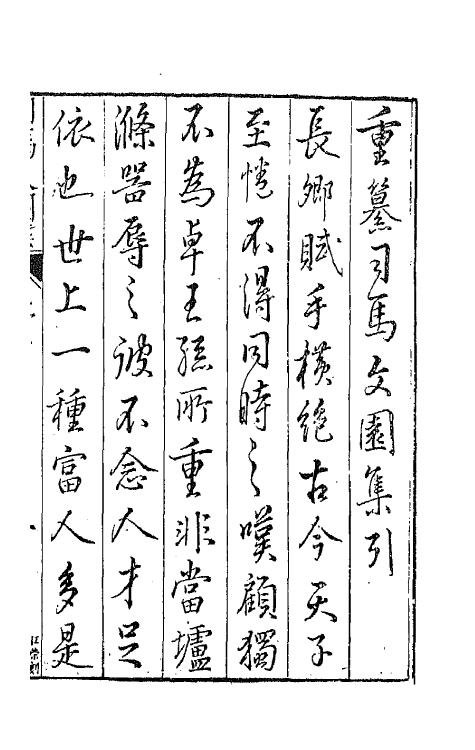 重纂司馬文園集引
長卿賦手橫絶古今天子
至惓不得同時之嘆顧獨
不為卓王孫所重非當壚
滌器辱之彼不念人才足
依也世上一種富人多是